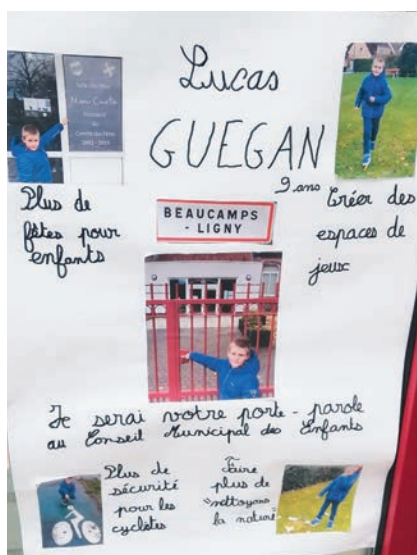 Lucas
GUEGAN
9 ans
Plus de
fêtes pour
enfants
BEAUCAMPS
- LIGNY
Créer des
espaces de
jeux
Je serai votre porte-parole
au Conseil Municipal des Enfants
Plus de
sécurité
pour les
cyclistes
Faire
plus de
"nettoyons
la nature"